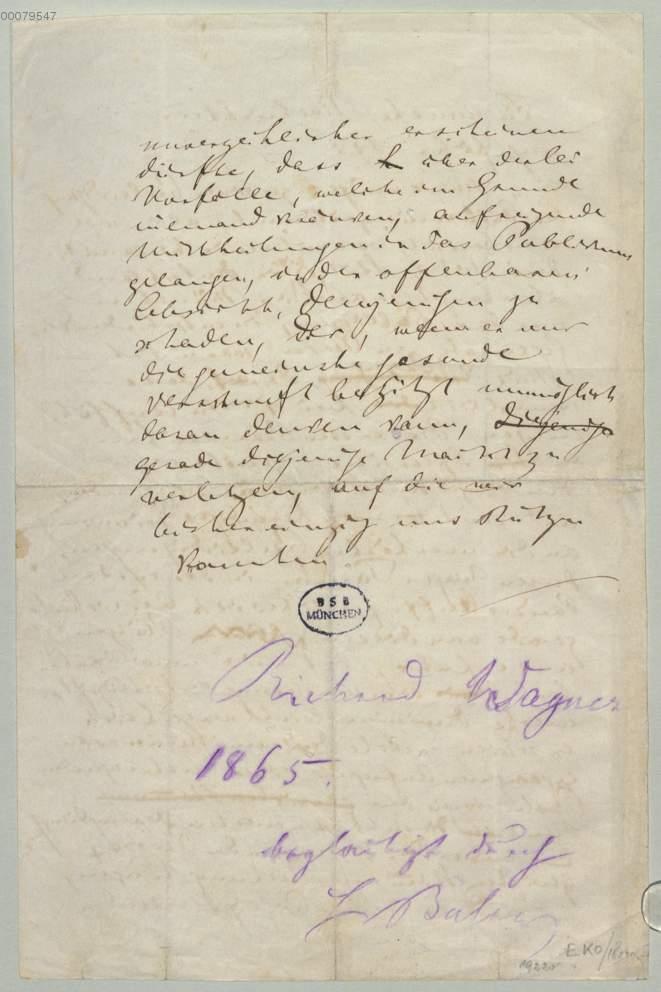 00079547
unverzeihlicher erscheinen
dürfte, dass über derlei
Vorfälle, welche im Grunde
niemand kränken, aufreizende
Mittheilungen in das Publikum
gelangen, in der offenbaren
Absicht, demjenigen zu
schaden, der, wenn er nur
die gemeinste gesunde
Vernunft besitzt unmöglich
daran denken kann, diejenige
gerade diejenige Macht zu
verletzen, auf die wir
bisher einzig uns stützen
konnten.
BSB
MÜNCHEN
Richard Wagner
1865.
beglaubigt durch